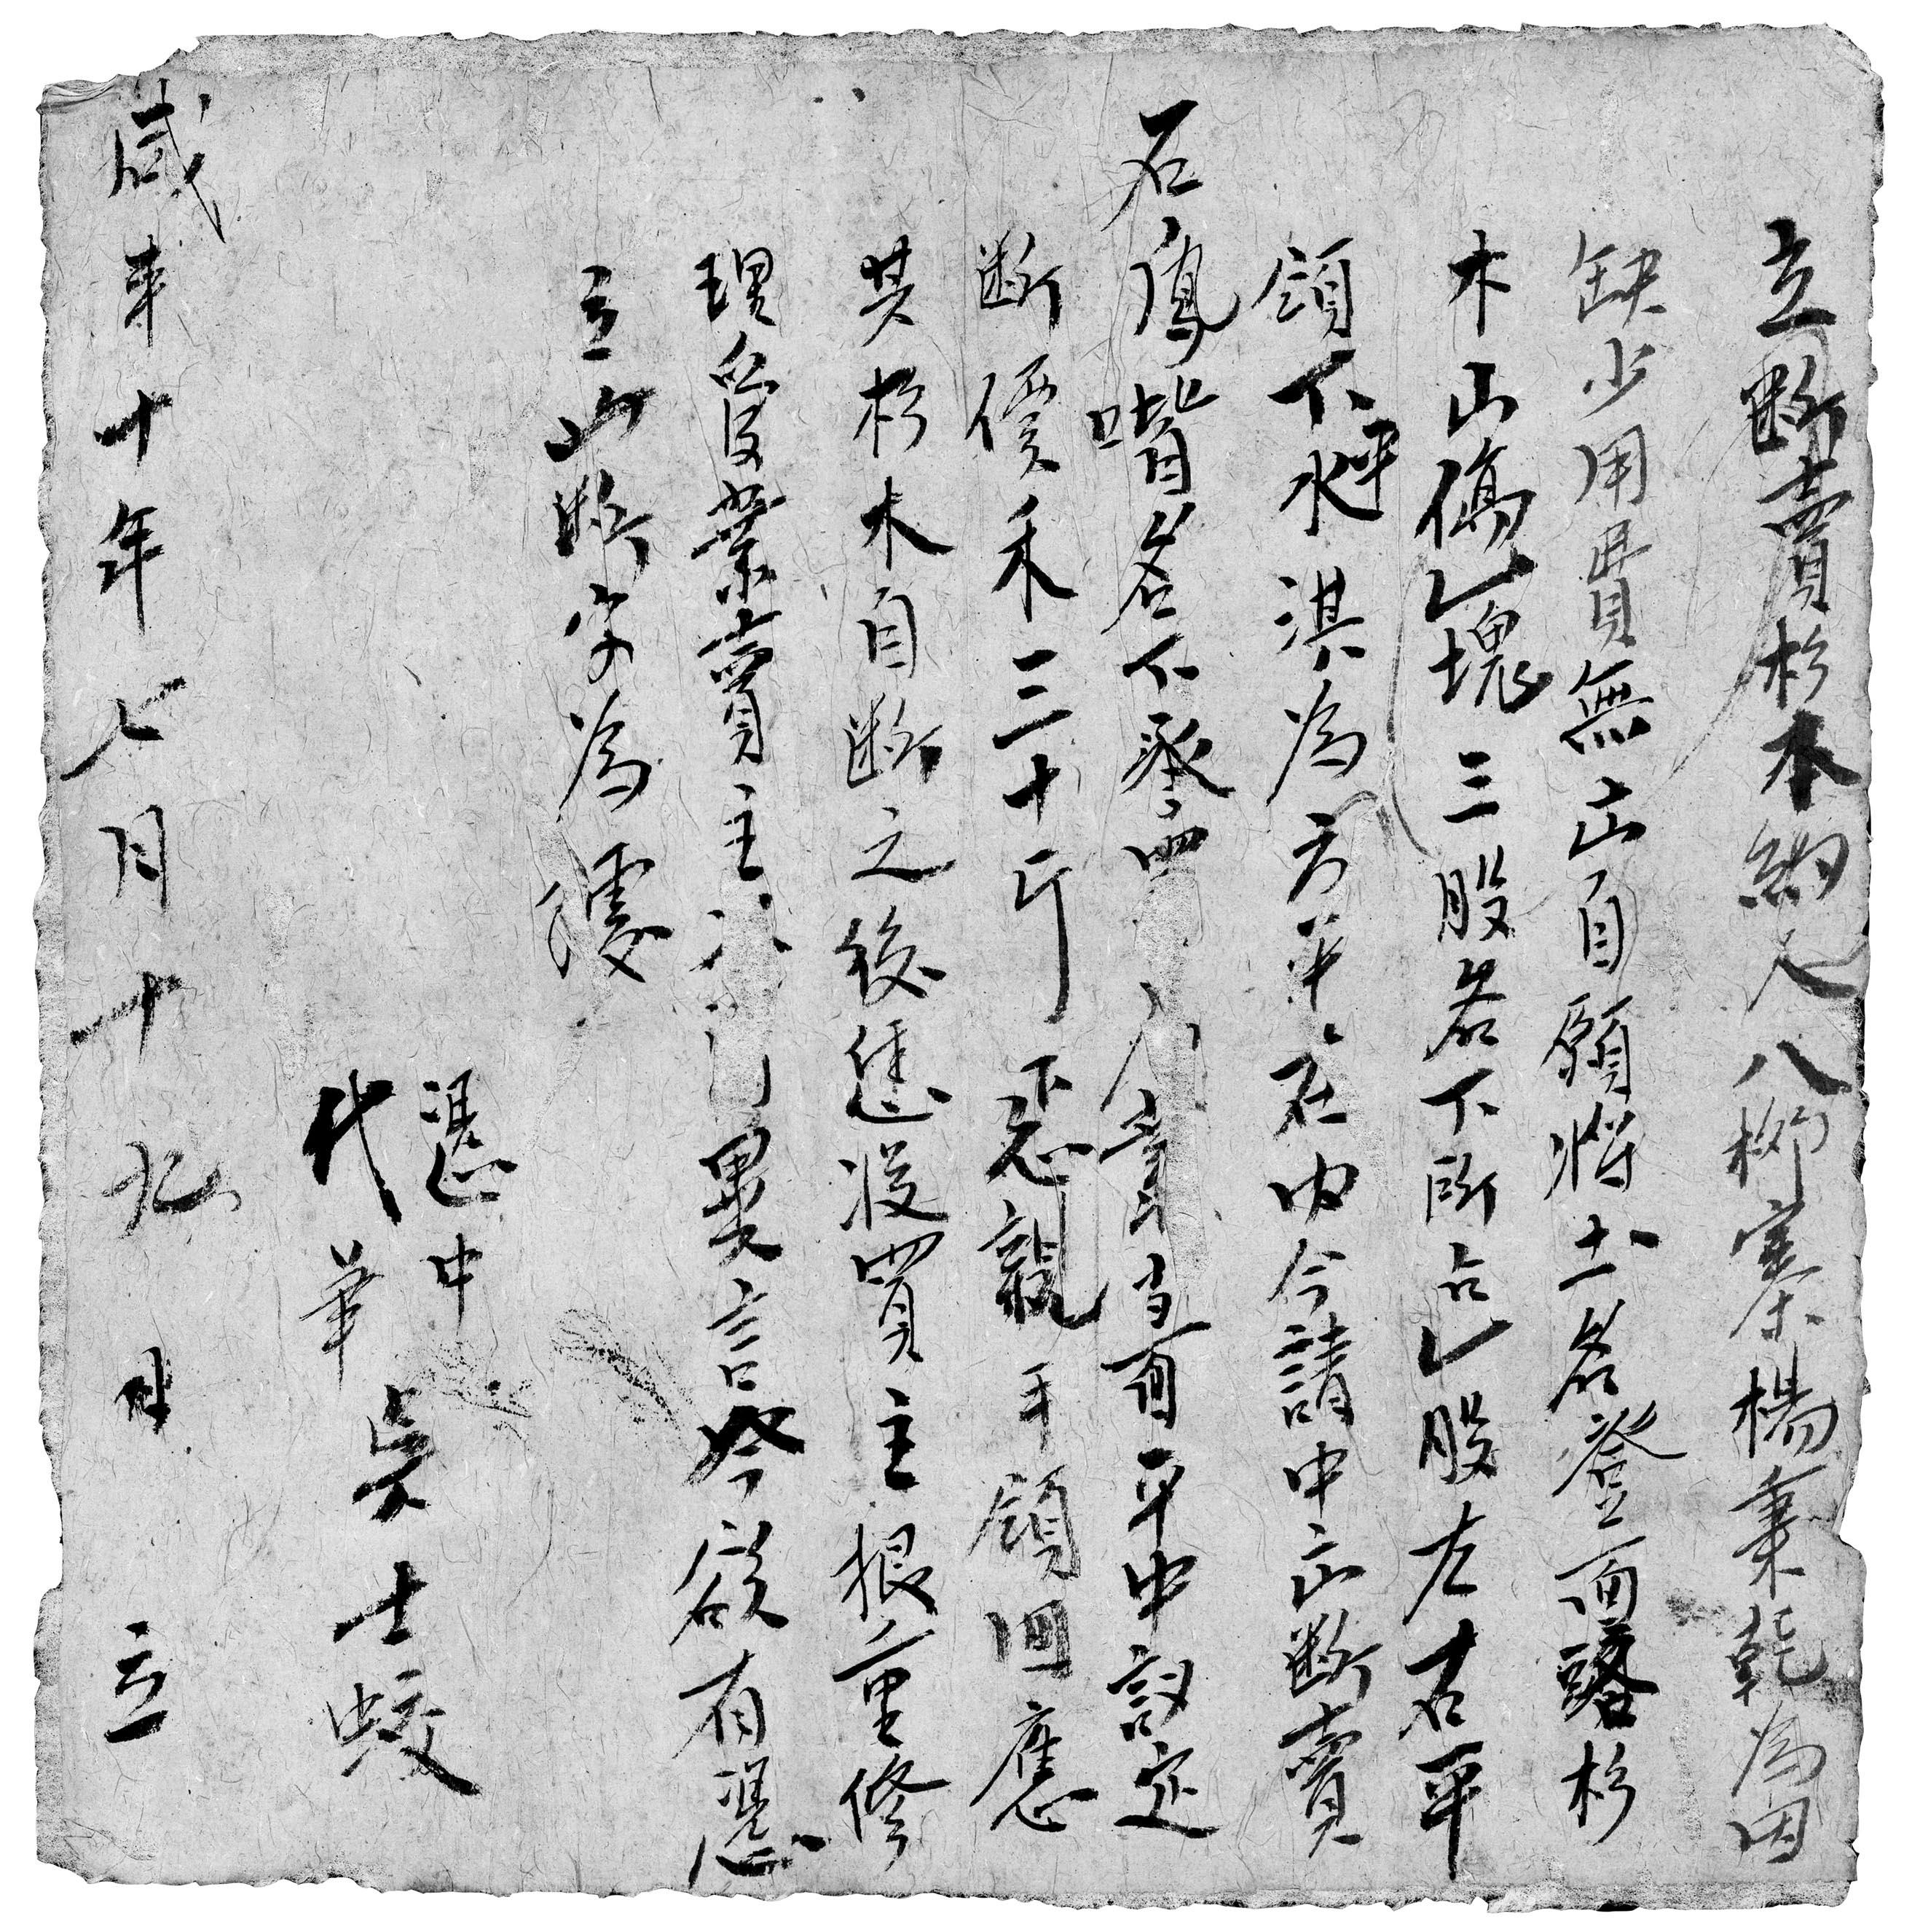 立斷賣杉木約人八柳寨楊秉乾為因
缺少用費無出自願將土名登面路杉
木山傌乚塊三股名下所占乚股左右平
領下水坪淇為方平在內今請中出斷賣
石鳳喈名下承四當面平中議定
斷價禾三十斤親手領回應
其杉木自斷之後任從買主根重修
理管業賣主不異言今欲有憑
立山斷字為據
憑中
代筆 吳士蛟
咸丰十年七月十九日 立